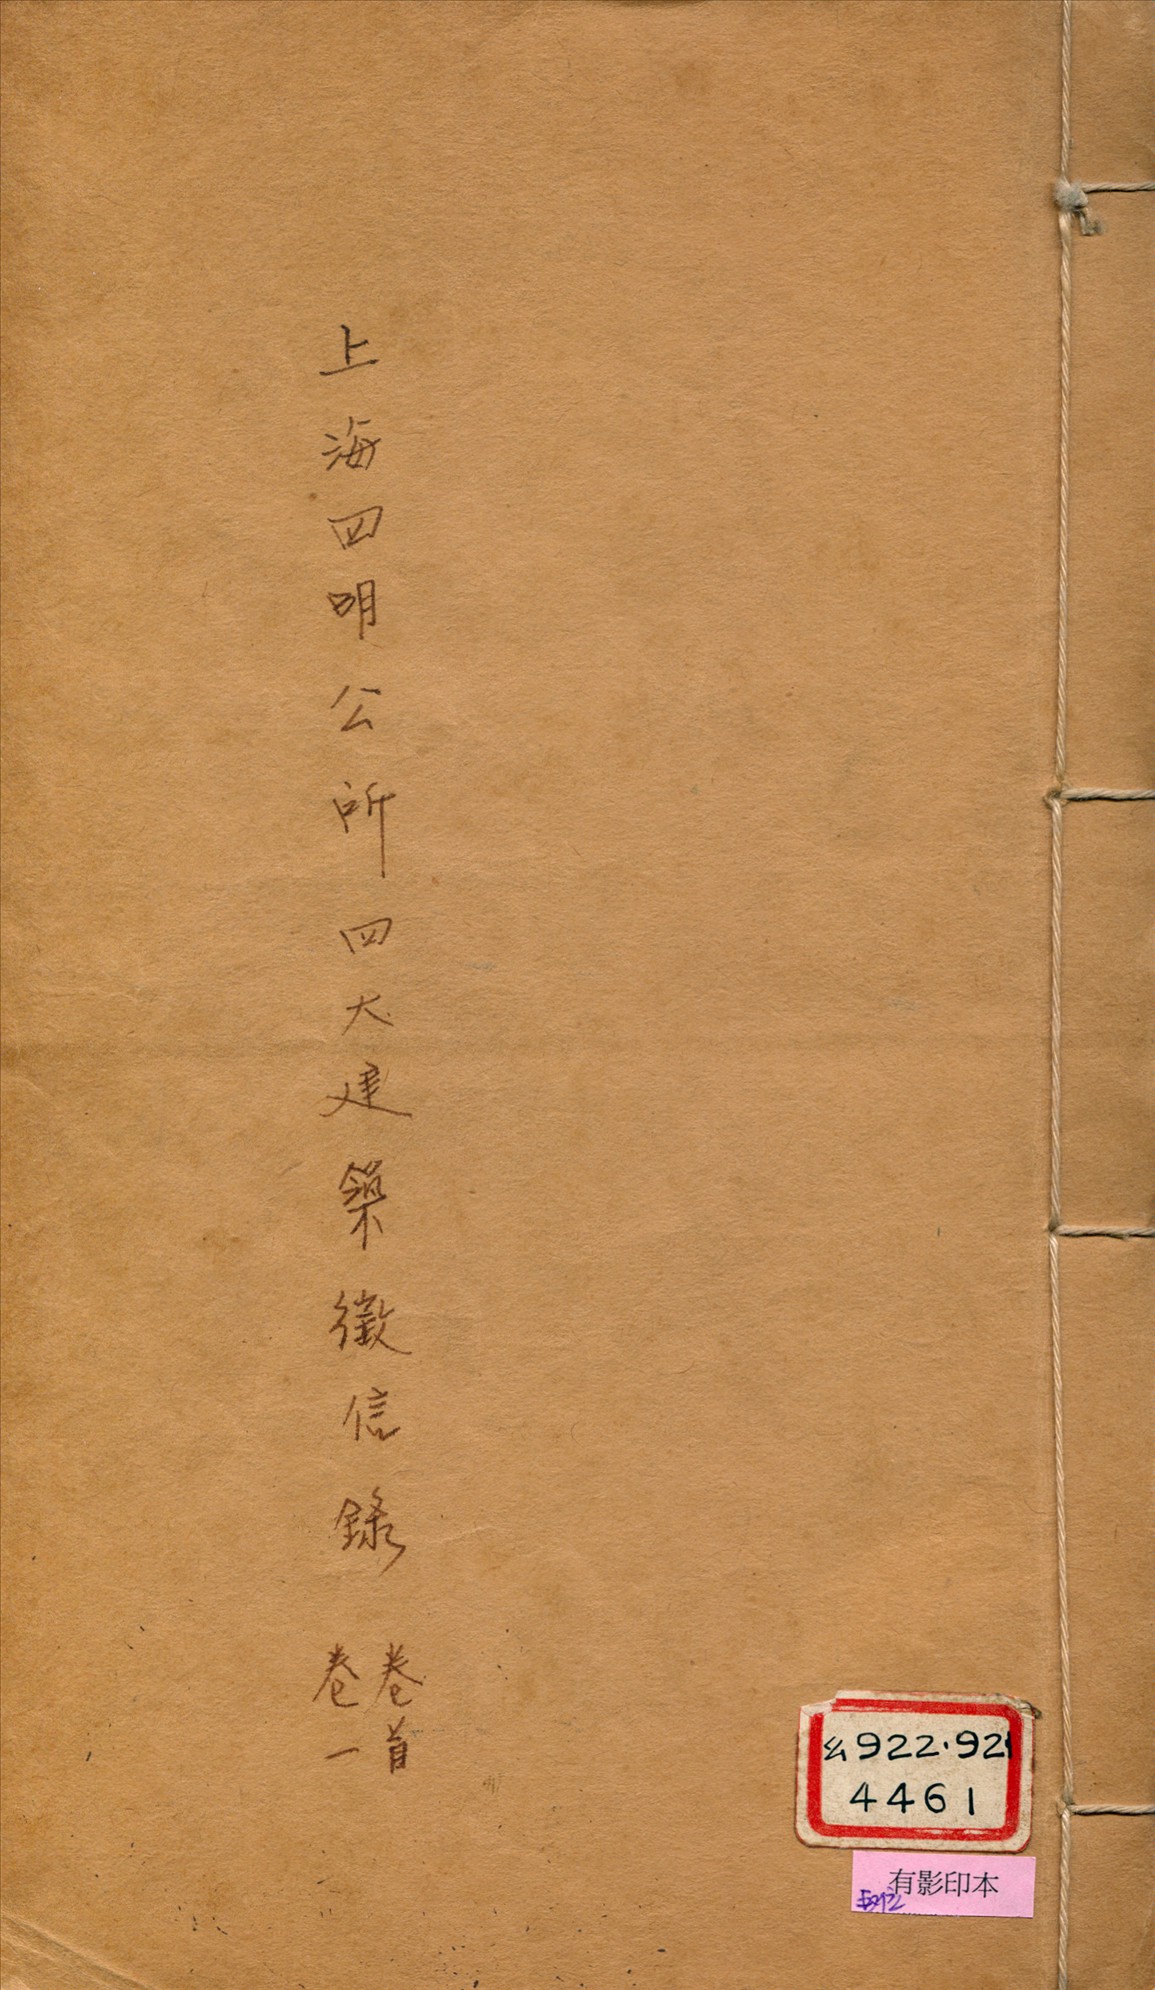 上海四明公所四大建築徵信錄
卷首
卷一
922·921
4461
有影印本